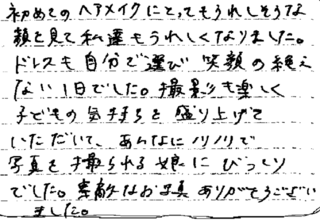 初めてのヘアメイクにとってもうれしそうな
顔を見て私達もうれしくなりました。
ドレスも自分で選び笑顔の絶え
ない1日でした。撮影も楽しく
子どもの気持ちを盛り上げて
いただいて、あんなにノリノリで
写真を撮られる娘にびっくり
でした。素敵なお写真ありがとうござい
ました。